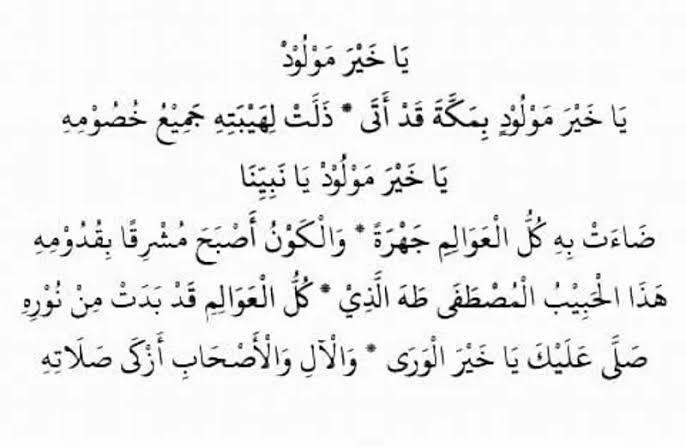 يَا خَيْرَ مَوْلُوْدْ
يَا خَيْرَ مَوْلُوْدٍ بِمَكَّةَ قَدْ أَتَى * ذَلَتْ لِهَيْبَتِهِ جَمِيْعُ خُصُوْمِهِ
يَا خَيْرَ مَوْلُوْدْ يَا نَبِيَّنَا
ضَاءَتْ بِهِ كُلُّ الْعَوَالِمِ جَهْرَةً * وَالْكَوْنُ أَصْبَحَ مُشْرِقًا بِقُدُوْمِهِ
هَذَا الْحَبِيْبُ الْمُصْطَفَى طَهَ الَّذِيْ * كُلُّ الْعَوَالِمِ قَدْ بَدَتْ مِنْ نُوْرِهِ
صَلَّى عَلَيْكَ يَا خَيْرَ الْوَرَى * وَالْآلِ وَالْأَصْحَابِ أَزْكَى صَلَاتِهِ